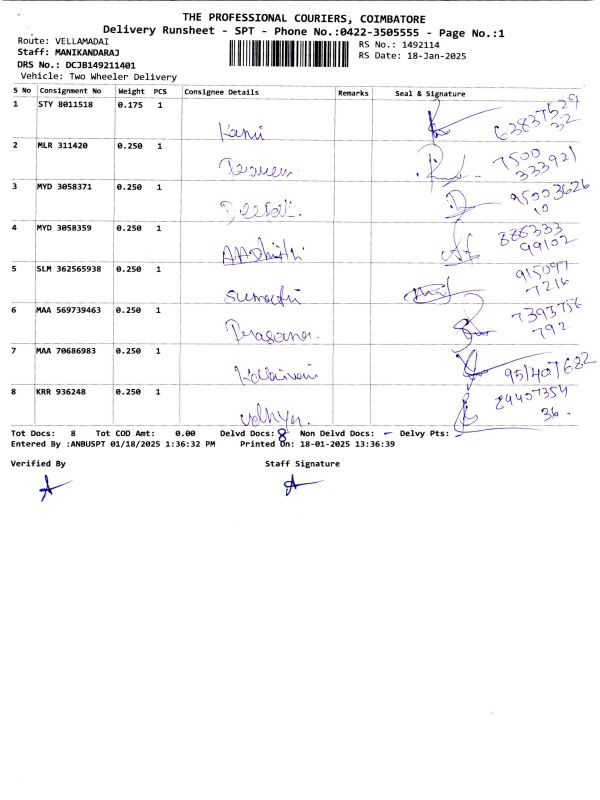 THE PROFESSIONAL COURIERS, COIMBATORE
Delivery Runsheet - SPT - Phone No.:0422-3505555 - Page No.:1
Route: VELLAMADAI
RS No.: 1492114
Staff: MANIKANDARAJ
RS Date: 18-Jan-2025
DRS No.: DCJB149211401
Vehicle: Two Wheeler Delivery
S No Consignment No Weight PCS Consignee Details Remarks Seal & Signature
1 STY 8011518 0.175 1
62837529
32
2 MLR 311420 0.250 1
7500
333921
3 MYD 3058371 0.250 1
95003626
10
4 MYD 3058359 0.250 1
886333
99102
5 SLM 362565938 0.250 1 Sumathi
915097
7216
6 MAA 569739463 0.250 1 Prasana.
7393756
792
7 MAA 70686983 0.250 1
951407632
8 KRR 936248 0.250 1 Vidhya.
89407354
36.
Tot Docs: 8 Tot COD Amt: 0.00 Delvd Docs: 8 Non Delvd Docs: - Delvy Pts:
Entered By :ANBUSPT 01/18/2025 1:36:32 PM Printed On: 18-01-2025 13:36:39
Verified By Staff Signature